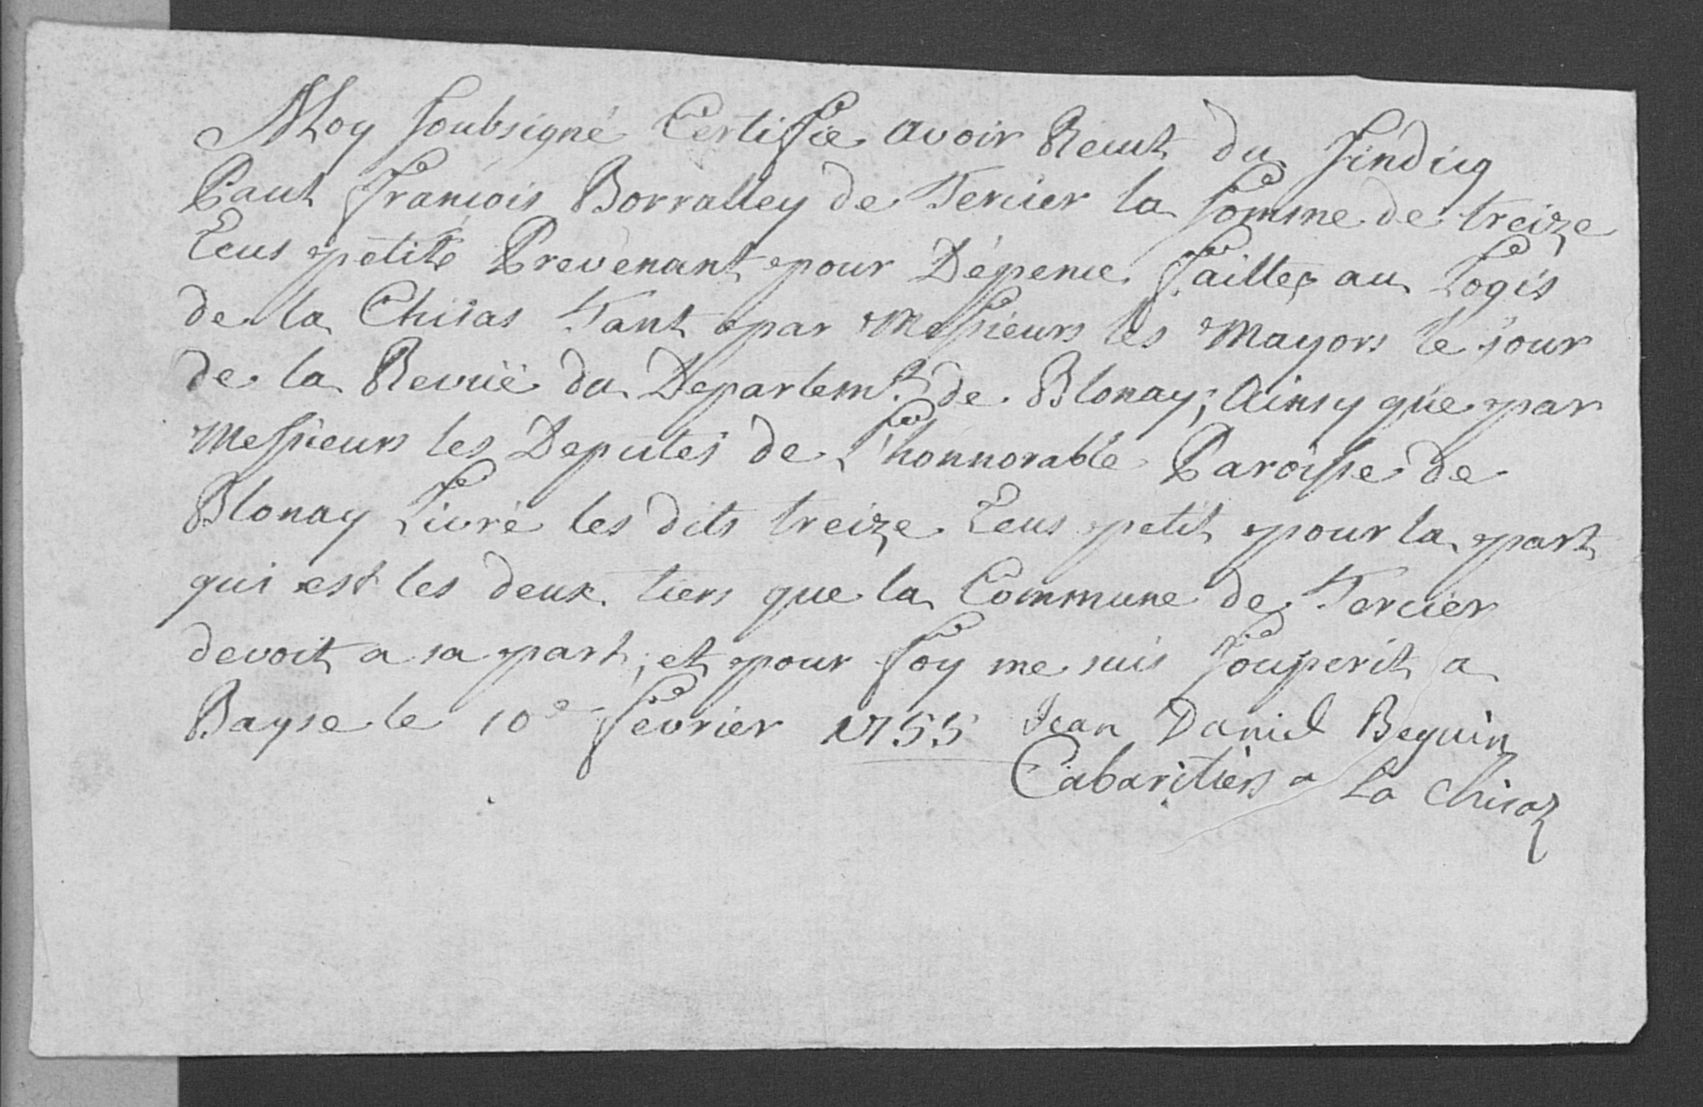 Moy soubsigné Certifie avoir Reçut du Sindicq
Paul François Borralley de Tercier la somme de treize
Ecus petits Prevenant pour Dépence faittes au Logis
de la Chisas Tant par Messieurs les Mayors le jour
de la Revuë du Departemt. de Blonay; Ainsy que par
Messieurs les Deputés de L'honnorable Paroisse de
Blonay Livré les dits treize Ecus petit pour la part
qui est les deux tiers que la Commune de Tercier
devoit a sa part, et pour foy me suis souscrit a
Bayse le 10e fevrier 1755 Jean Daniel Beguin
Cabaritiers a La Chisaz